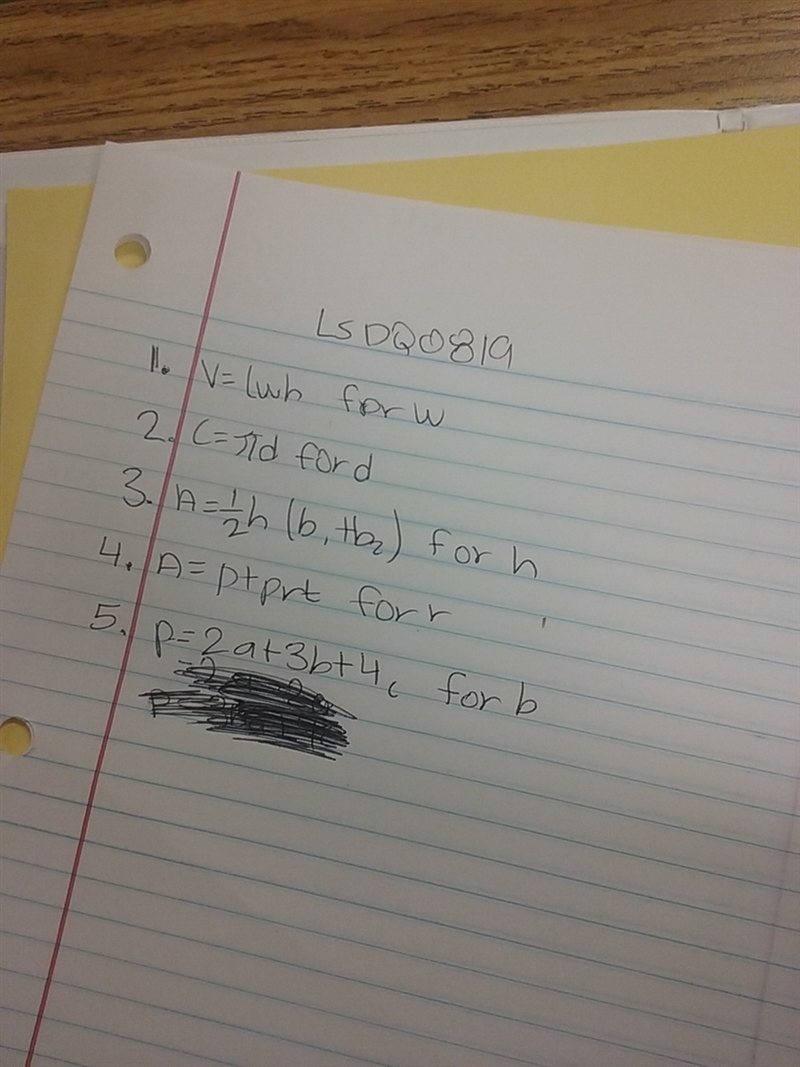 LSDQ0819
1. V=lwh for w
2. C=πd for d
3. A=½h (b, +b₂) for h
4. A=p+prt for r
5. P=2a+3b+4c for b